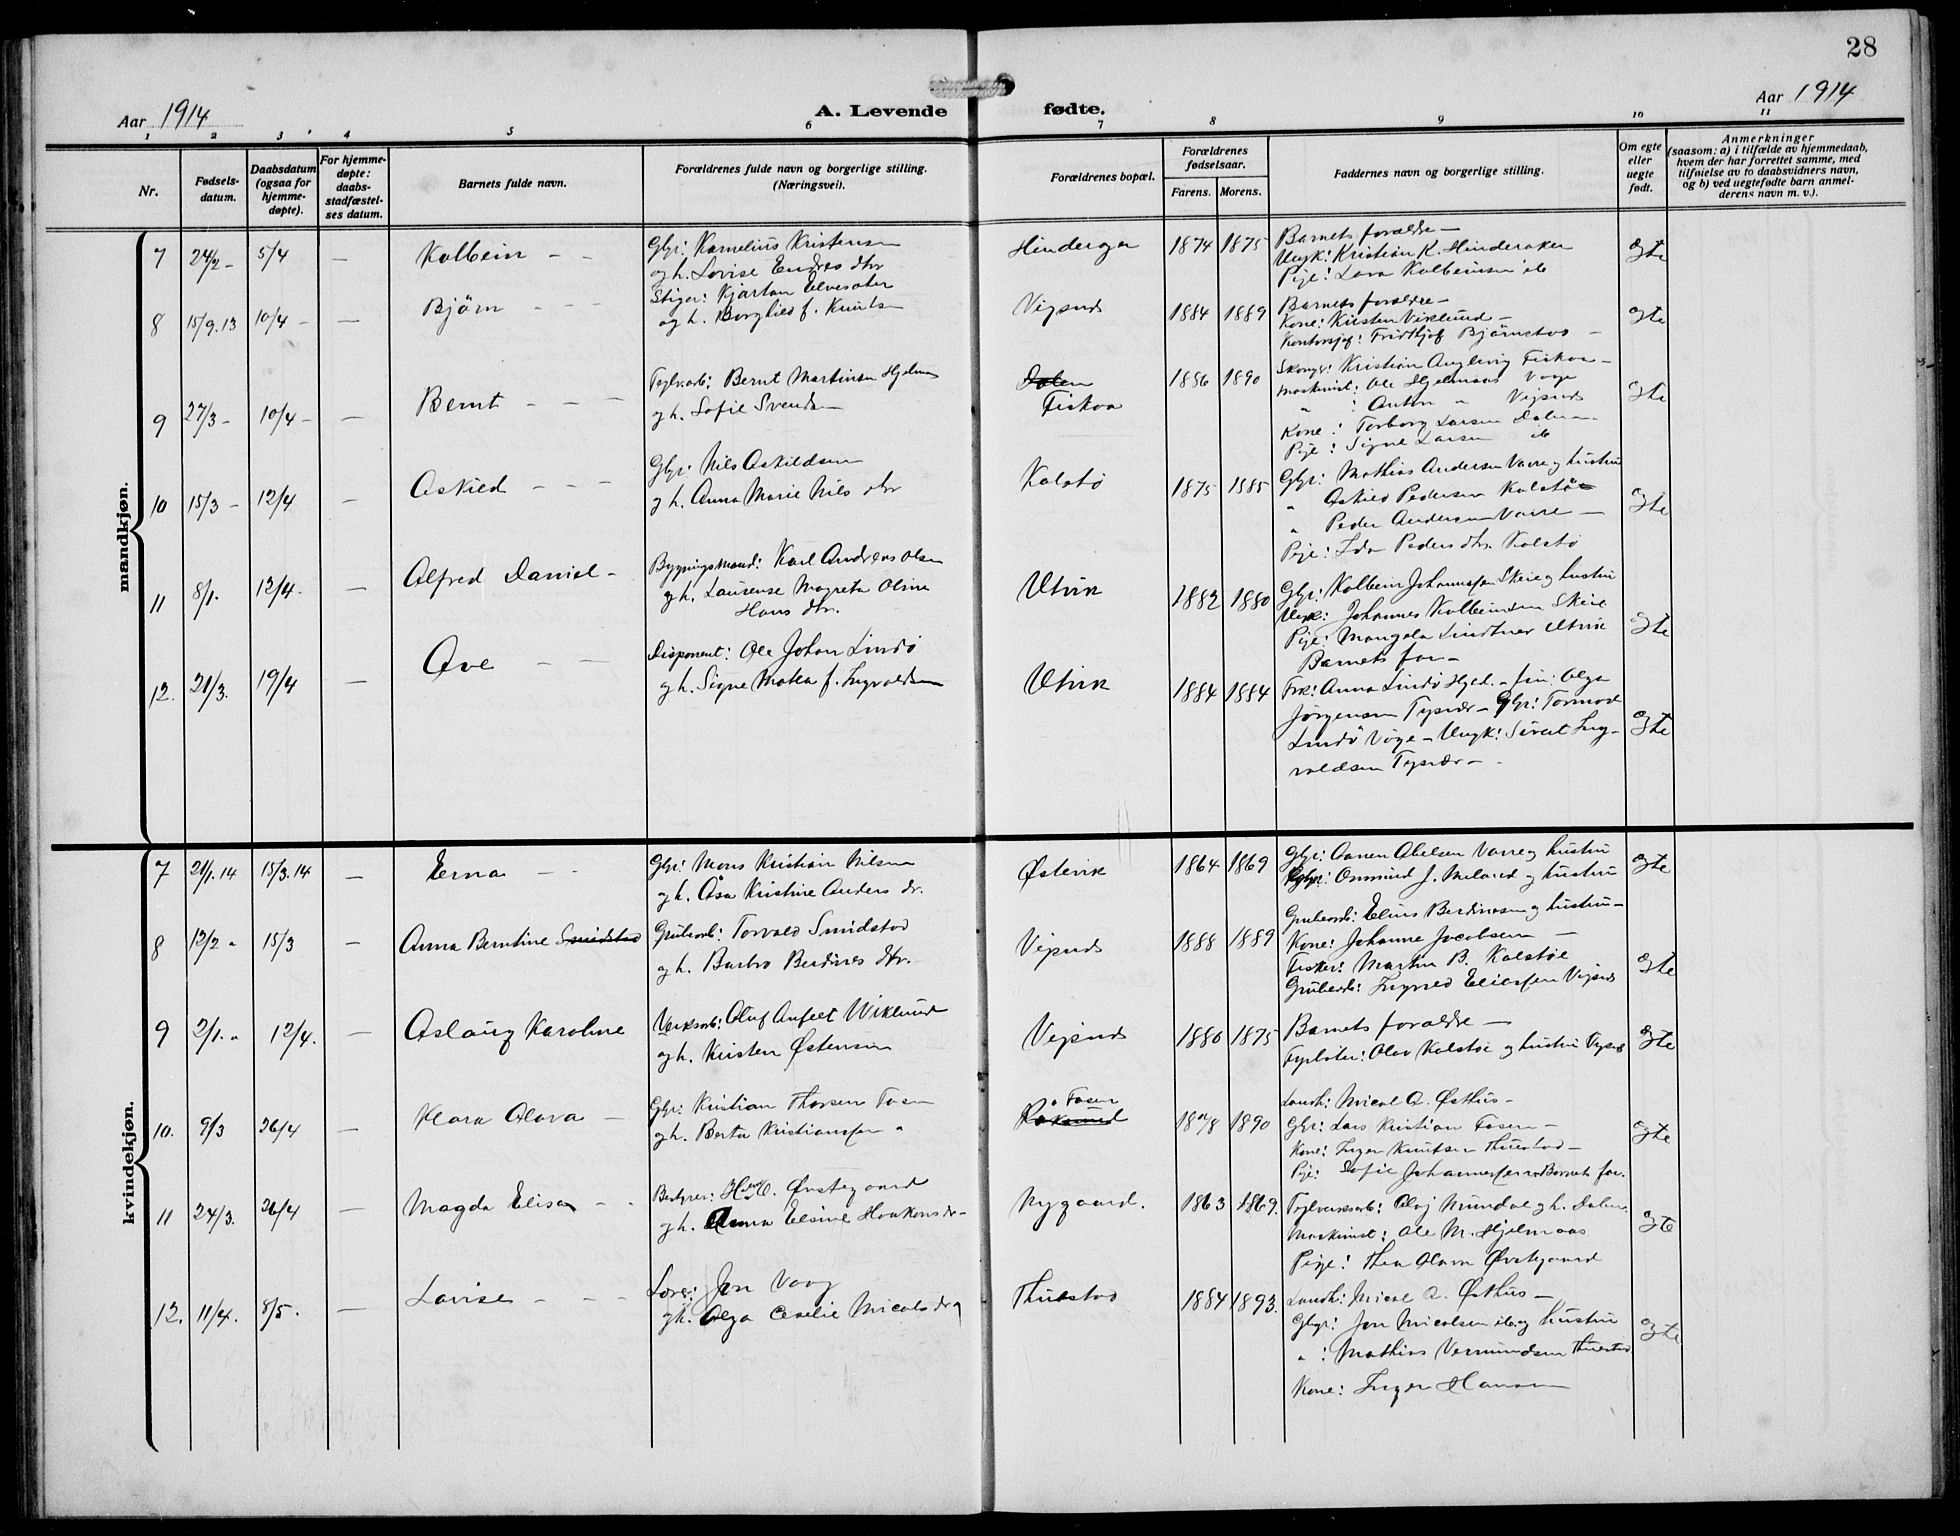 28
Aar 1914
A. Levende fødte.
Aar 1914
1 2 3 4 5 6 7 8 9 10 11
Nr.
Fødsels-
datum.
Daabsdatum
(ogsaa for
hjemme-
døpte).
For hjemme-
døpte:
daabs-
stadfæstel-
ses datum.
Barnets fulde navn.
Forældrenes fulde navn og borgerlige stilling.
(Næringsvei).
Forældrenes bopæl.
Forældrenes
fødselsaar.
Farens. Morens.
Faddernes navn og borgerlige stilling.
Om egte
eller
uegte
født.
Anmerkninger
(saasom: a) i tilfælde av hjemmedaab,
hvem der har forrettet samme, med
tilføielse av to daabsvidners navn,
og b) ved uegtefødte barn anmel-
derens navn m. v.).
mandkjøn.
7 24/2 - 5/4 — Kolbein - -
Gbr: Kornelius Kristensen
og h. Lovise Endres dtr
Hinderaker 1874 1875
Barnets forældre -
Ungk: Kristian K. Hinderaker
Pige: Lava Kolbeinsen ib
Egte
8 15/9.13 10/4 - — Bjørn - - -
Stiger: Kjartan Elvesæter
og h. Borglied f. Knutsen
Vigsnes 1884 1889
Barnets forældre -
Kone: Kristen Viklund -
Kontorsjef: Fridthjof Bjørnstad -
Egte
9 27/3 - 10/4 - — Bernt - - -
Teglvarb: Bernt Martinsen Hjelmaas
og h. Sofie Svendsen
Dalen
Fiskaa
1856 1890
Kristian Auglevig Fiskaa -
Maskinist: Ole Hjelmaas Vaage
" : Anton " Vigsnes
Kone: Torborg Larsen Dalen
Pige: Signe Larsen ib
Egte
10 15/3 - 12/4 - Askild - - -
Gbr: Nils Askildsen
og h. Anna Marie Nils dtr
Kalstø 1875 1885
Gbr: Mathias Andersen Varre og hustru
" Askild Pedersen Kalstø
" Peder Andersen Varre -
Pige: Ida Peders dtr. Kalstø
Egte
11 8/1. 12/4. — Alfred Daniel -
Bygningsmand: Karl Andreas Olsen
og h. Laurense Magreta Oline
Hans dtr.
Utvik 1882 1880
Gbr: Kolbein Johannessen Skeie og hustru
Ungk: Johannes Kolbeinsen Skeie
Pige: Mangela Lindtner Utvik
Egte
12. 21/3. 19/4 — Ove - -
Disponent: Ole Johan Lindø
og h. Signe Matea f. Ingvaldsen
Utvik 1884 1884
Barnets far -
Frk: Anna Lindø Hjed. - Olga
Jørgensen Tysvær - Gbr: Tormod
Lindø Våge - Ungk: Sivert Ing-
valdsen Tysvær -
Egte
kvindekjøn.
7 21/1.14 15/3.14 — Erna - -
Gbr: Mons Kristian Nilsen
og h. Åsa Kristine Anders dr.
Østevik 1864 1869
Gbr: Aanen Abelsen Varre og hustru
Gbr: Osmund J. Meland og hustru
Egte
8 12/2 " 15/3 — Anna Berntine Smidstad
Grubearb: Torvald Smidstad
og h. Barbro Berdines dtr.
Vigsnes 1888 1889
Grubearb: Elius Berdinesen og hustru -
Kone: Johanne Jacobsen -
Fisker: Martin B. Kalstøe
Grubearb: Ingvald Eliassen Vigsnes
Egte
9 2/1. " 12/4. — Aslaug Karoline
Verksarb: Oluf Anfelt Wiklund
og h. Kristen Østensen
Vigsnes 1880 1875
Barnets forældre -
Fyrbøter: Olav Kalstøe og hustru Vigsnes
Egte
10. 9/3 26/4 — Klara Olava -
Gbr: Kristian Thorsen Fosen
og h. Berta Kristiansen "
Fosen
1890
Landh: Nicol A. Østhus -
Gbr: Lars Kristian Fosen -
Kone: Inger Knutsen Thuestad -
Pige: Sofie Johannessen. Barnets far.
Egte
11 24/3. 26/4 — Magda Elisa - -
Bestyrer: H. O. Østegaard
og h. Anna Elsine Haakons dr -
Nygaard. 1863 1869.
Teglverksarb: Olaf Mundal og h. Dalen
Maskinist: Ole M. Hjelmaas
Pige: Thea Olava Østegaard
Egte
12. 11/4. 8/5. — Lovise - - -
Lærer: Jon Vaag
og h. Olga Cecilie Nicolsdr
Thuestad 1884 1893.
Landh: Nicol A. Østhus -
Gbr: Jon Nicolsen ib og hustru
" : Mathias Vermundsen Thuestad
Kone: Inger Hansen
Egte